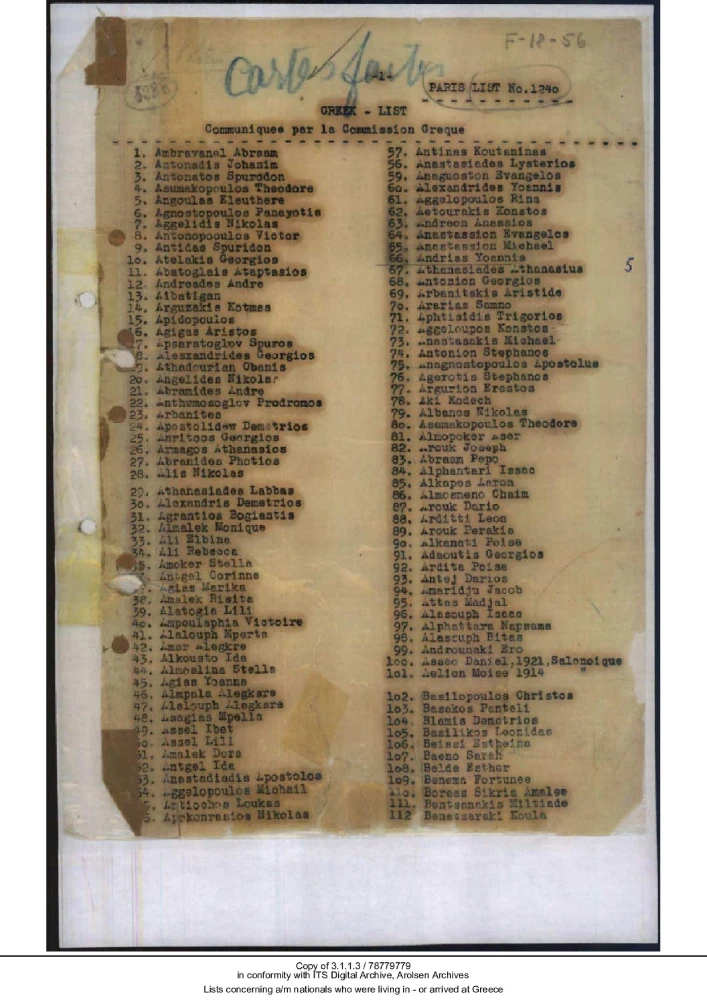 F-18-56
cartes faites
-1-
PARIS LIST No.1240
5286
GREEK - LIST
Communiques par la Commission Greque
1. Ambravanel Abraam
2. Antonadis Johanim
3. Antonatos Spurodon
4. Asumakopoulos Theodore
5. Angoulas Eleuthere
6. Agnostopoulos Panayotis
7. Aggelidis Nikolas
8. Antonopooulos Victor
9. Antidas Spuridon
1o. Atelakis Georgios
11. Abatoglais Ataptasios
12. Andreades Andre
13. Aibatigan
14. Arguzakis Kotmas
15. Apidopoulos
6. Agigas Aristos
7. Apsaratoglov Spuros
8. Alesxandrides Georgios
9. Athadourian Obanis
2o. Angelides Nikolas
21. Abramides Andre
22. Anthomosoglov Prodromos
23. Arbanites
24. Apostolidew Demetrios
25. Anritoos Georgios
26. Armagos Athanasios
27. Abranides Photios
28. Alis Nikolas
29. Athanasiades Labbas
3o. Alexandris Demetrios
31. Agrantios Bogiantis
32. Almalek Monique
33. Ali Elbina
34. Ali Rebecca
35. Amoker Stella
Antgel Corinne
Agias Marika
38. Amalek Risita
39. Alatogia Lili
4o. Ampoulaphia Victoire
41. Alalouph Mperta
42. Amar Alegkre
43. Alkousto Ida
44. Almoslina Stella
45. Agias Yoanna
46. Almpala Alegkere
47. Alalouph Alegkare
48. Asagias Mpella
49. Assel Ibet
5o. Assel Lili
51. Amalek Dora
52. Antgel Ida
53. Anastadiadis Apostolos
54. Aggelopoulos Michail
5. Antiochos Loukas
6. Apokonrasios Nikolas
57. Antinas Koutsninas
58. Anastasiades Lysterios
59. Anagnoston Evangelos
6o. Alexandrides Yoannis
61. Aggelopoulos Rina
62. Aetourakis Konstos
63. Andreon Anassios
64. Anastassion Evangelos
65. Anastassion Michael
66. Andrias Yoannis
67. Athanasiades Athanasius
68. Antonion Georgios
69. Arbanitakis Aristide
7o. Ararias Samno
71. Aphtisidis Trigorios
72. Aggeloupos Konstos
73. Anastasakis Michael
74. Antonion Stephanos
75. Anagnostopoulos Apostolus
76. Agerotis Stephanos
77. Argurion Erestos
78. Aki Kodech
79. Albanos Nikolas
8o. Asemakopoulos Theodore
81. Almopoker Aser
82. Arouk Joseph
83. Abraam Pepo
84. Alphantari Issac
85. Alkapes Aaron
86. Almosneno Chaim
87. Arouk Dario
88. Arditti Leon
89. Arouk Perakia
9o. Alkanati Poise
91. Adsoutis Georgios
92. Ardita Poise
93. Antej Darios
94. Amaridju Jacob
95. Attas Madjal
96. Alasouph Isaac
97. Alphattara Napsama
98. Alasouph Bitas
99. Androunaki Ero
1oo. Assec Daniel,1921,Salonoique
1o1. Aelion Moise 1914 "
1o2. Basilopoulos Christos
1o3. Basakos Panteli
1o4. Blamis Demetrios
1o5. Basilikos Leonidas
1o6. Beissi Estheina
1o7. Baeno Sarah
1o8. Belde Esther
1o9. Benema Fortunee
11o. Boreas Sikria Amalee
111. Bentsanakis Miltiade
112 Benessaraki Koula
5
Copy of 3.1.1.3 / 78779779
in conformity with ITS Digital Archive, Arolsen Archives
Lists concerning a/m nationals who were living in - or arrived at Greece